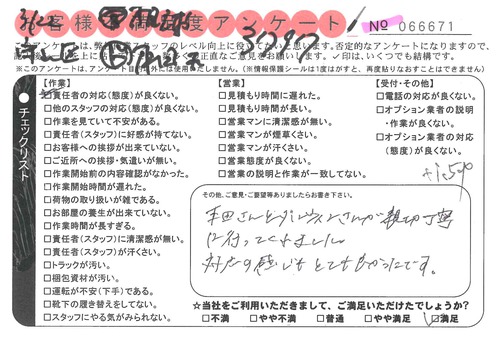 お客様満足度アンケート
No 066671
3797
※このアンケートは、アンケート目的以外には使用いたしません。(※情報保護シールは1度はがすと、再度貼りなおすことはできません)
チェックリスト
【作業】
□責任者の対応(態度)が良くない。
□他のスタッフの対応(態度)が良くない。
□作業を見ていて不安がある。
□責任者(スタッフ)に好感が持てない。
□お客様への挨拶が出来ていない。
□ご近所への挨拶・気遣いが無い。
□作業開始前の内容確認がなかった。
□作業開始時間が遅れた。
□荷物の取り扱いが雑である。
□お部屋の養生が出来ていない。
□作業時間が長すぎる。
□責任者(スタッフ)に清潔感が無い。
□責任者(スタッフ)が汗くさい。
□トラックが汚い。
□梱包資材が汚い。
□運転が不安(下手)である。
□靴下の履き替えをしてない。
□スタッフにやる気がみられない。
【営業】
□見積もり時間に遅れた。
□見積もり時間が長い。
□営業マンに清潔感が無い。
□営業マンが煙草くさい。
□営業マンが汗くさい。
□営業態度が良くない。
□営業の説明と作業が一致してない。
【受付・その他】
□電話の対応が良くない。
□オプション業者の説明
・作業が良くない。
□オプション業者の対応
(態度)が良くない。
その他、ご意見・ご要望等ありましたらお書き下さい。
親切丁寧
に行ってくれました。
対応の感じもとても良かったです。
☆当社をご利用いただきまして、ご満足いただけたでしょうか?
□不満 □やや不満 □普通 □やや満足 ☑満足